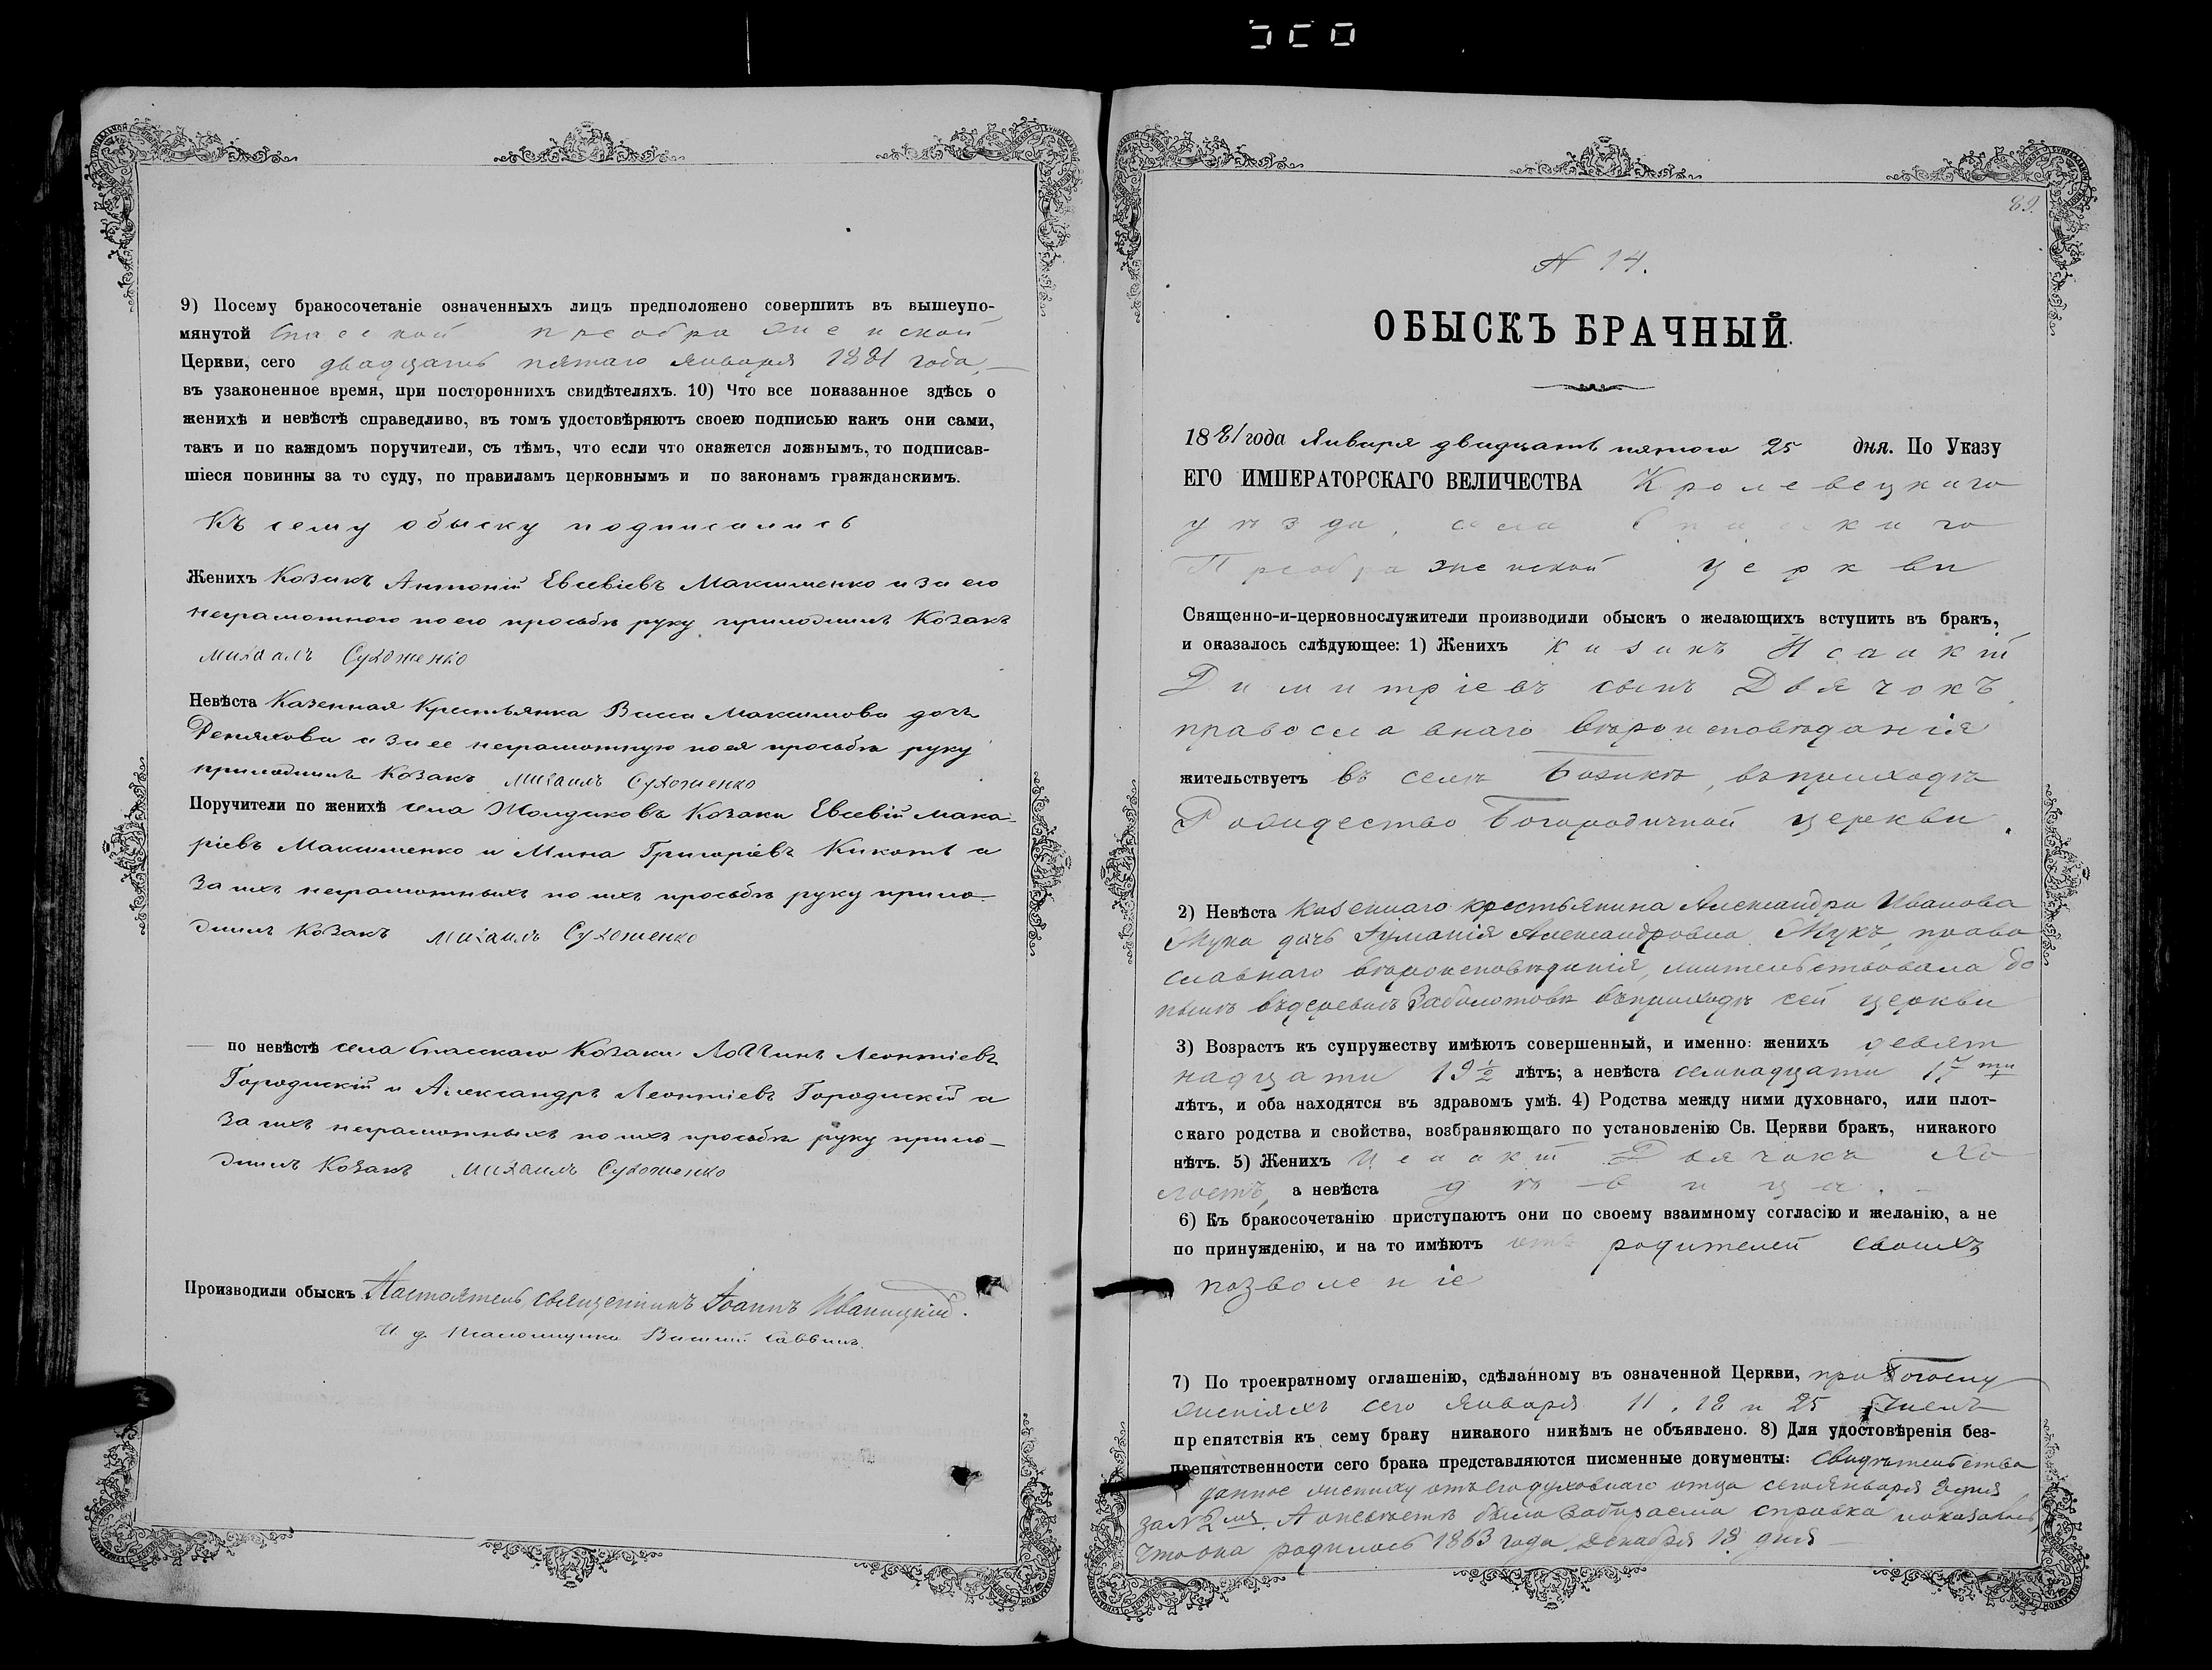 9) Посему бракосочетаніе означенныхъ лицъ предположено совершить въ вышеупо-
мянутой Спасской преображенской
Церкви, сего двадцать пятаго Января 1881 года,
въ узаконенное время, при постороннихъ свидѣтеляхъ. 10) Что все показанное здѣсь о
женихѣ и невѣстѣ справедливо, въ томъ удостовѣряютъ своею подписью какъ они сами,
такъ и по каждомъ поручители, съ тѣмъ, что если что окажется ложнымъ, то подписав-
шіеся повинны за то суду, по правиламъ церковнымъ и по законамъ гражданскимъ.
Къ сему обыску подписались
Женихъ Козакъ Антоній Евсевіевъ Максименко и за его
неграмотного по его просьбѣ руку приложилъ Козакъ
Михаилъ Сухоженко
Невѣста Казенная Крестьянка Васса Максимова дочь
и за ее неграмотную по ея просьбѣ руку
приложилъ Козакъ Михаилъ Сухоженко
Поручители по женихѣ села Жолдаковъ Козаки Евсевій Мака-
ріевъ Максименко и Мина Григоріевъ Кикоть а
за ихъ неграмотныхъ по ихъ просьбѣ руку прило-
жилъ Козакъ Михаилъ Сухоженко
по невѣстѣ села Спасскаго Козаки Леонтіевъ
Городискій и Александръ Леонтіевъ Городискій а
за ихъ неграмотныхъ по ихъ просьбѣ руку прило-
жилъ Козакъ Михаилъ Сухоженко
Производили обыскъ Настоятель, священникъ Іоаннъ Иваницкій.
И. д. Псаломщика Василій Саввинъ.
89.
N 14.
ОБЫСКЪ БРАЧНЫЙ.
1881 года Января двадцать пятого 25 дня. По Указу
ЕГО ИМПЕРАТОРСКАГО ВЕЛИЧЕСТВА Кролевецкаго
уѣзда, села Спасскаго
Преображенской церкви
Священно-и-церковнослужители производили обыскъ о желающихъ вступить въ бракъ,
и оказалось слѣдующее: 1) Женихъ казакъ Исаакій
Димитріевъ сынъ Двячокъ,
православнаго вѣроисповѣданія
жительствуетъ въ селѣ Божикѣ, въ приходѣ
Рождество Богородичной церкви.
2) Невѣста казеннаго крестьянина Александра Иванова
Мука дочь Александровна Мукъ, право
славнаго вѣроисповѣданія, жительствовала до
нынѣ въ деревнѣ Заболотовѣ въ приходѣ сей церкви
3) Возрастъ къ супружеству имѣютъ совершенный, и именно: женихъ девят
надцати 19 ½ лѣтъ; а невѣста семнадцати 17 ти
лѣтъ, и оба находятся въ здравомъ умѣ. 4) Родства между ними духовнаго, или плот-
скаго родства и свойства, возбраняющаго по установленію Св. Церкви бракъ, никакого
нѣтъ. 5) Женихъ Исаакій Двячокъ хо
лостъ, а невѣста дѣвица.
6) Къ бракосочетанію приступаютъ они по своему взаимному согласію и желанію, а не
по принужденію, и на то имѣютъ отъ родителей своихъ
позволеніе
7) По троекратному оглашенію, сдѣланному въ означенной Церкви, при Богослу
женіяхъ сего Января 11, 18 и 25 Числъ
препятствія къ сему браку никакого никѣмъ не объявлено. 8) Для удостовѣренія без-
препятственности сего брака представляются писменные документы: свидѣтельство
данное жениху отъ его духовнаго отца сего Января дня
за N 2 мъ. А о невѣстѣ была забираема справка показалось,
что она родилась 1863 года Декабря 18 дня